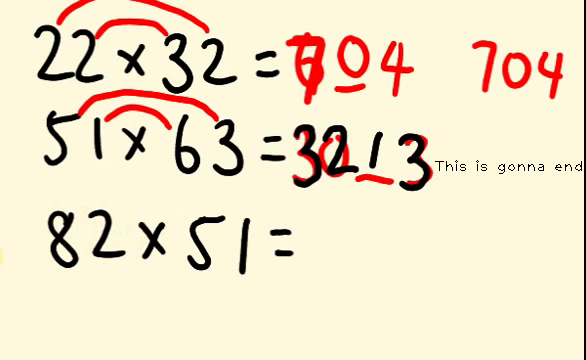 22 × 32 = 704 704
51 × 63 = 3213 This is gonna end
82 × 51 =